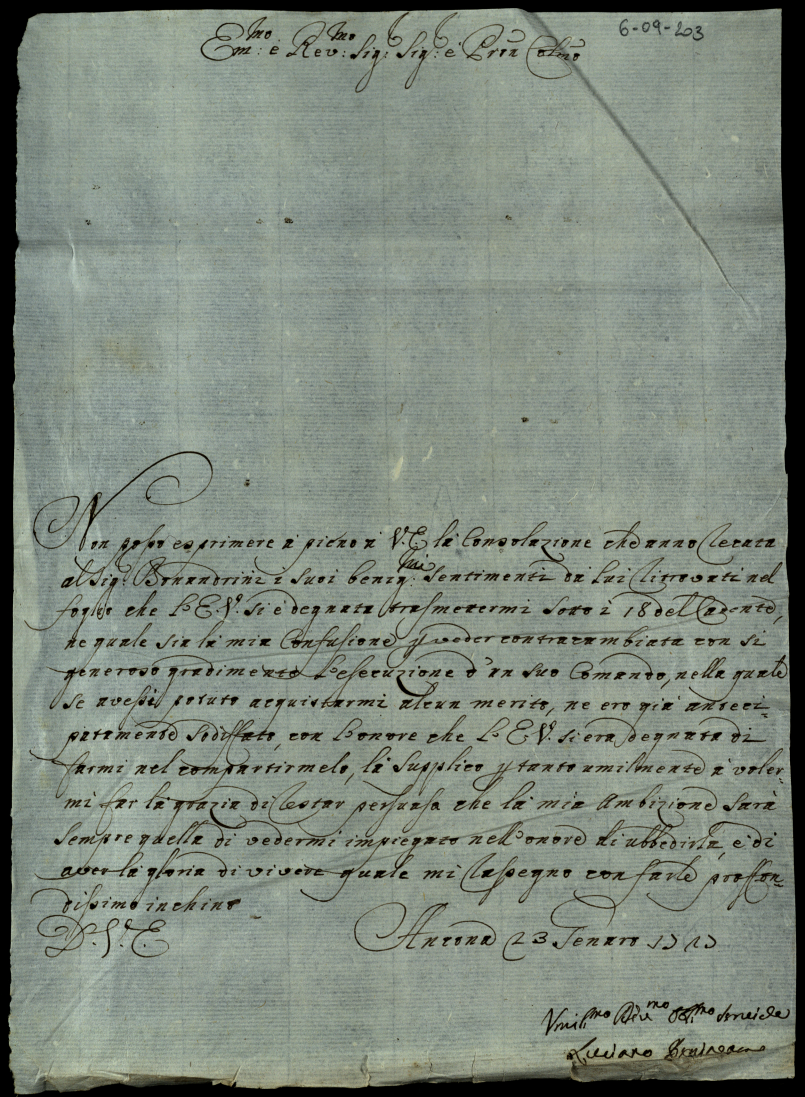 6-09-203
Em:mo e Rev:mo Sig:r Sig:r e Pron Colmo
Non posso esprimere à pieno à V.E. la Consolazione che anno recata
al Sig:r Bonandrini i suoi benig:mi Sentimenti da lui ritrovati nel
foglio che L'E.V. si è degnata trasmetermi sotto i 18 del Cadente,
ne quale sia la mia Confusione p veder contracambiata con si
generoso gradimento L'esecuzione d'un suo Comando, nella quale
se avessi potuto acquistarmi alcun merito, ne ero già anteci-
patamente sodisfatto, con L'onore che L'E.V. si era degnata di
farmi nel compartirmelo, la supplico p tanto umilmente à voler-
mi far la grazia di restar persuasa che la mia Ambizione sarà
sempre quella di vedermi impiegato nell'onore di ubbedirla, e di
aver la gloria di vivere quale mi rassegno con farle proffon-
dissimo inchino
D. V. E.
Ancona 23 Genaro 17
Umil:mo Div:mo Obl:mo Servide
Luciano